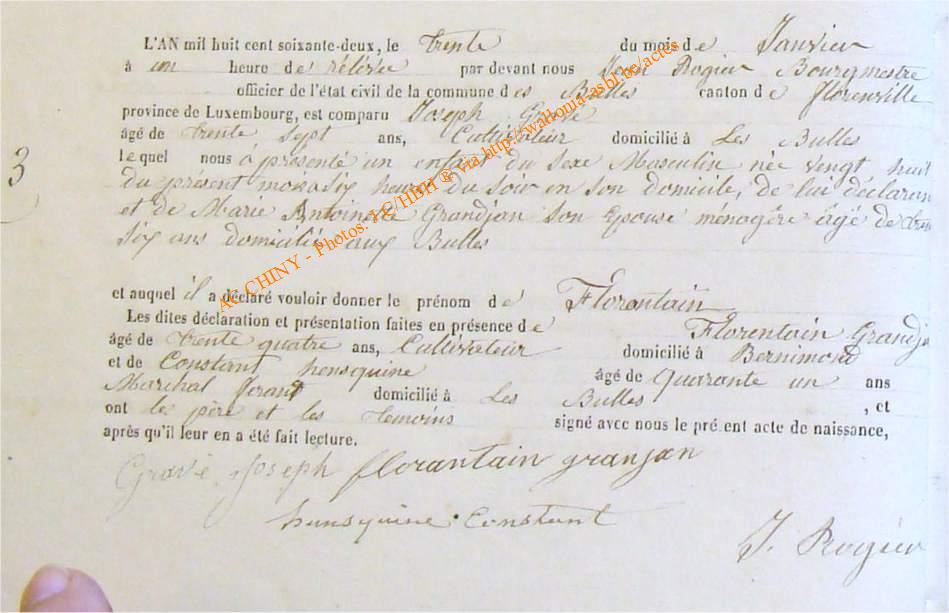 L'AN mil huit cent soixante-deux, le trente du mois de Janvier
à un heure de rélévée par devant nous Jean Rogier Bourgmestre
officier de l'état civil de la commune des Bulles canton de florenville
province de Luxembourg, est comparu Joseph
âgé de trente sept ans, Cultivateur domicilié à Les Bulles
3
lequel nous à présenté un enfant du sexe Masculin née vengt huit
du présent mois a six heures du Soir en son domicile, de lui déclarant
et de Marie Antoinette Grandjan son Epouse ménagère âgé de
six ans domicilié aux Bulles
et auquel il a déclaré vouloir donner le prénom de Florantain
Les dites déclaration et présentation faites en présence de Florentain Grandja
âgé de trente quatre ans, Cultivateur domicilié à Bernimond
et de Constant hensquine âgé de Quarante un ans
Marchal ferant domicilié à Les Bulles , et
ont les père et les temoins signé avec nous le présent acte de naissance,
après qu'il leur en a été fait lecture.
Gravé Joseph florantain granjan
hensquine Constant
J. Rogier
AC CHINY - Photos: J.C/HBH ® via http://wallonia-asbl.be/actes